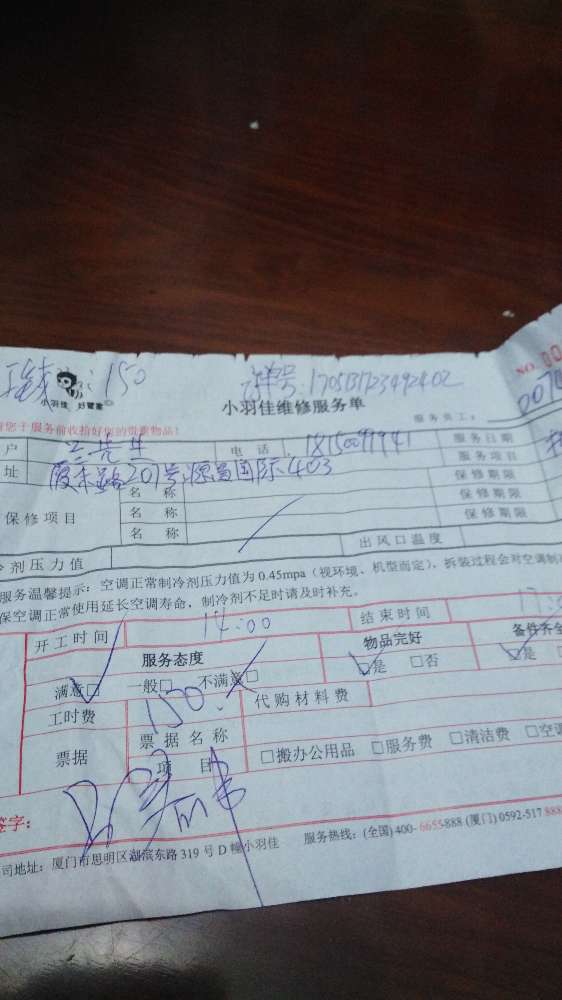 :150 单号:170513723492402
小羽佳 好管家
小羽佳维修服务单
NO.00
请您于服务前收拾好您的贵重物品!
服务员工:
户 先生 电话 服务日期
址 201号 国际403 服务项目
保修项目 名称 保修期限
名称 保修期限
名称 保修期限
剂压力值 出风口温度
服务温馨提示:空调正常制冷剂压力值为 0.45mpa(视环境、机型而定),拆装过程会对空调制
保空调正常使用延长空调寿命,制冷剂不足时请及时补充。
开工时间 14:00 结束时间 17:
服务态度 物品完好 备件齐全
满意□ 一般□ 不满意□ □是 □否 □是
工时费 150. 代购材料费
票据 票据名称
项目 □搬办公用品 □服务费 □清洁费 □空调
签字:
司地址:厦门市思明区湖滨东路 319 号 D 幢小羽佳 服务热线:(全国)400-6655-888 (厦门)0592-517 888